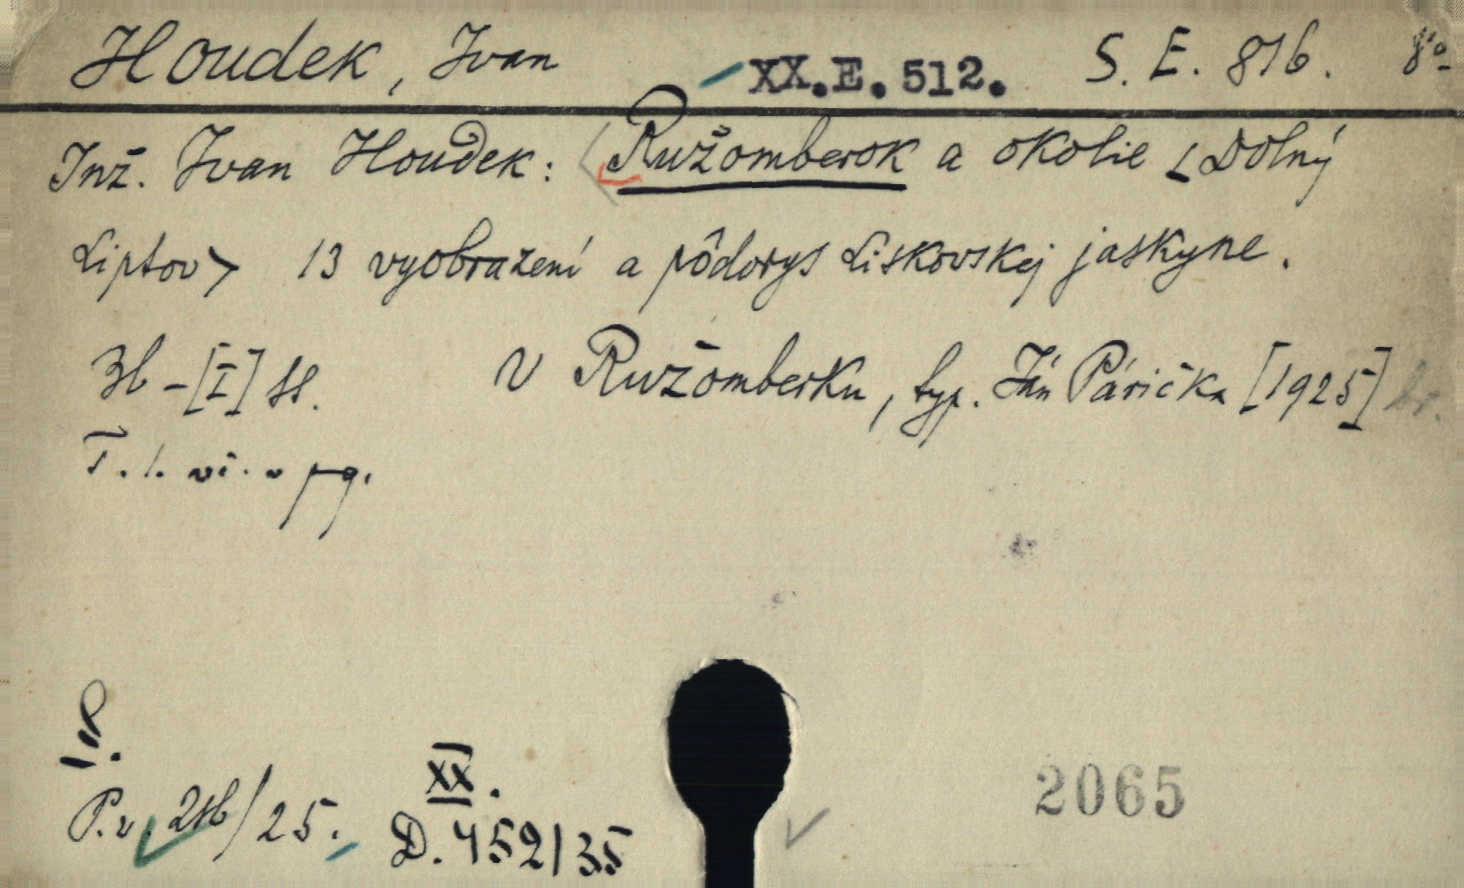 Houdek, Ivan XX.E.512. S. E. 816. 8°
Inž. Ivan Houdek: Ružomberok a okolie <Dolný
Liptov> 13 vyobrazení a pôdorys Liskovskej jaskyne.
36 - [I] ss. V Ružomberku, typ. Ján Párička [1925]
T. l. vi. v pg.
P.
P. v. 216/25. XX.
D. 452/35
2065